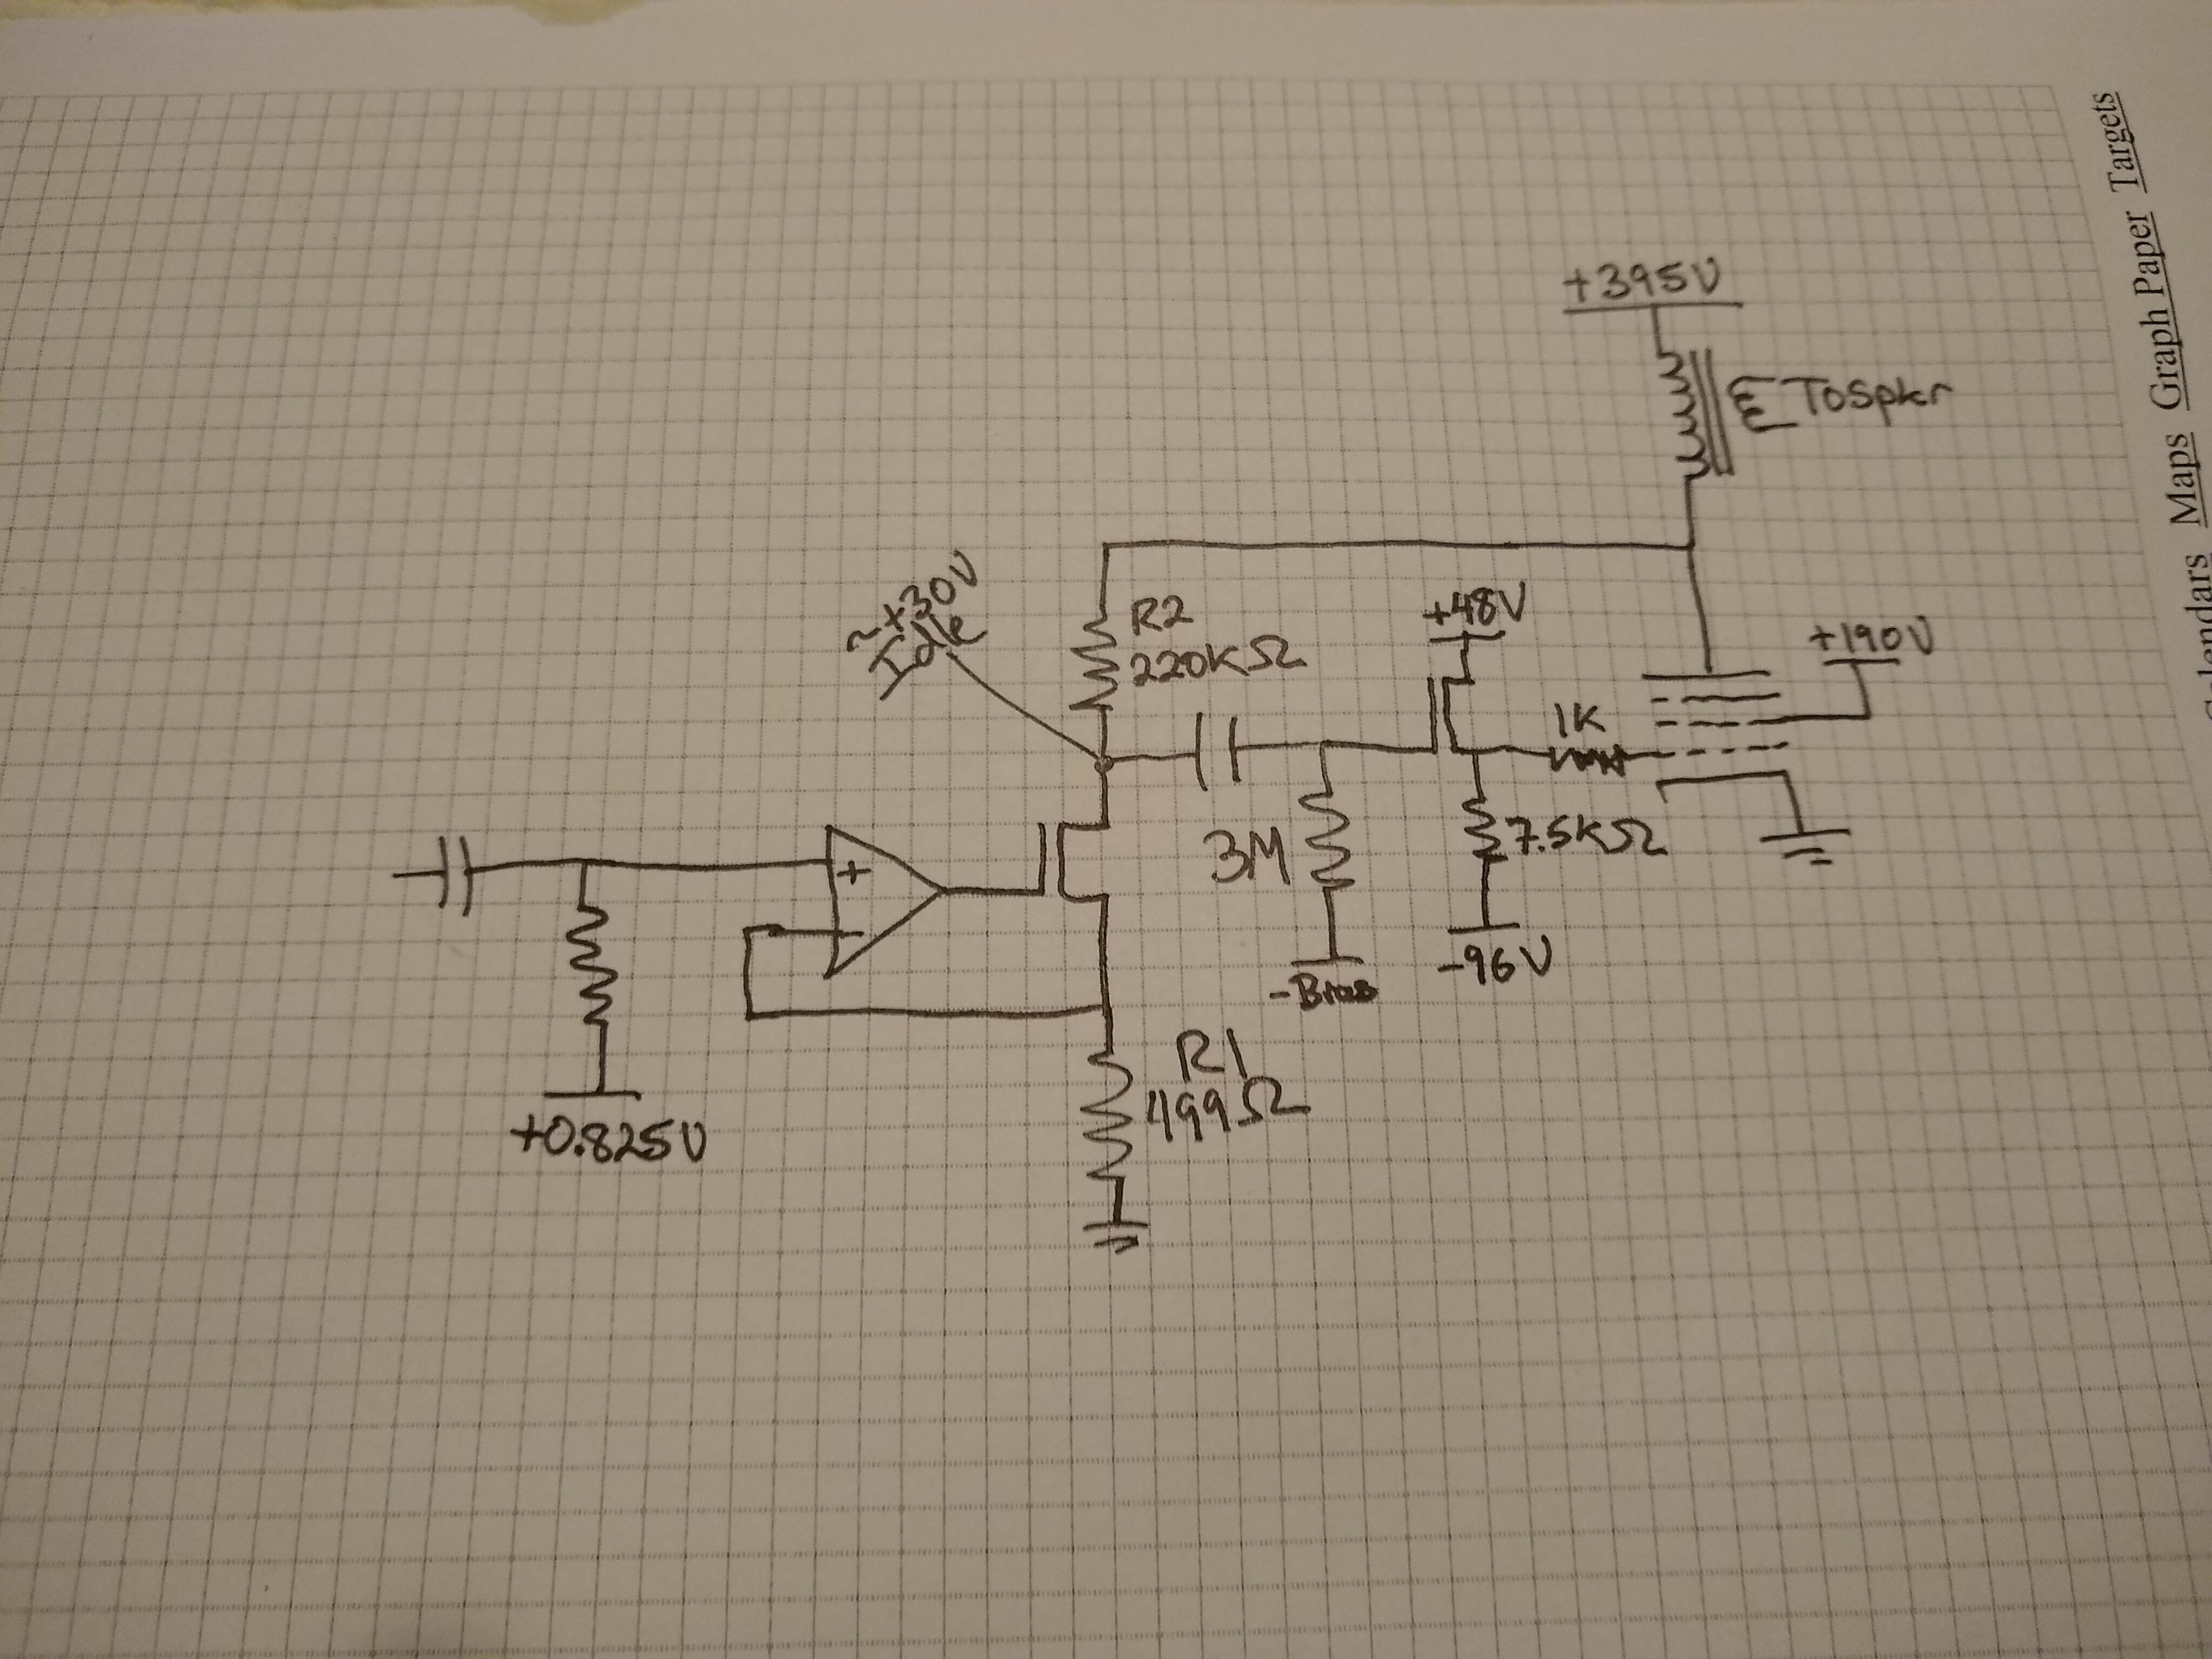 +395V
To spkr
~+30V
Idle
R2
220KΩ
+48V
+190V
1K
+
3M
7.5KΩ
-
-Bias
-96V
+0.825V
R1
499Ω
Maps Graph Paper Targets